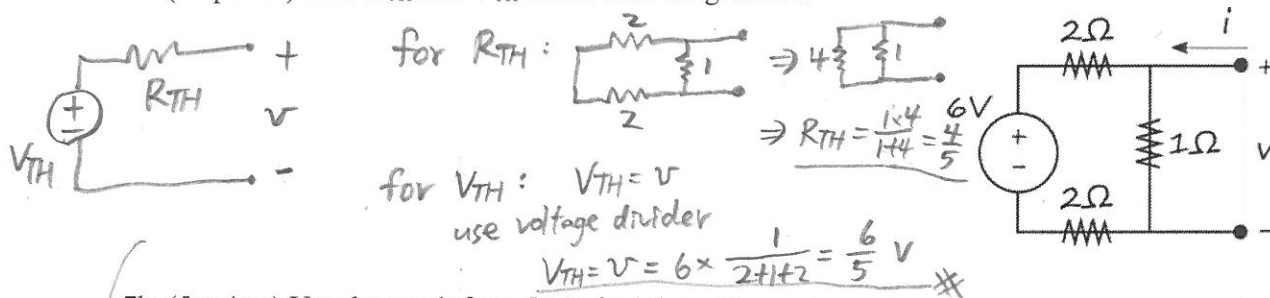 +
R_TH
v
V_TH
-
for R_TH :
2
1
2
⇒ 4
1
⇒ R_TH = 1×4/1+4 = 4/5
for V_TH : V_TH = v
use voltage divider
V_TH = v = 6 × 1/2+1+2 = 6/5 v
2Ω
i
+
6V
+
-
1Ω
v
2Ω
-